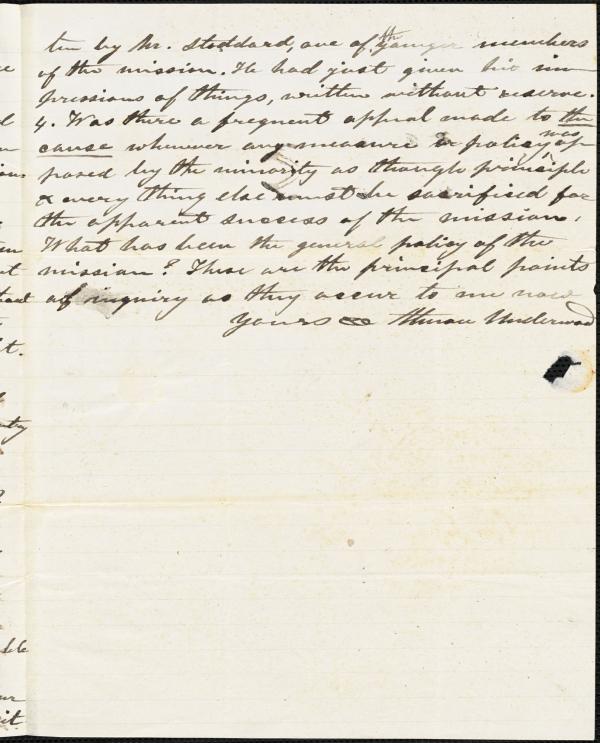 ten by Mr. Stoddard, one of the younger members
of the mission. He had just given his im-
pressions of things, written without reserve.
4. Was there a frequent appeal made to the
cause whenever any measure or policy, was op-
posed by the minority as though principle
& every thing else must be sacrificed for
the apparent success of the mission.
What has been the general policy of the
mission? These are the principal points
of inquiry as they occur to me now
Yours Underwood